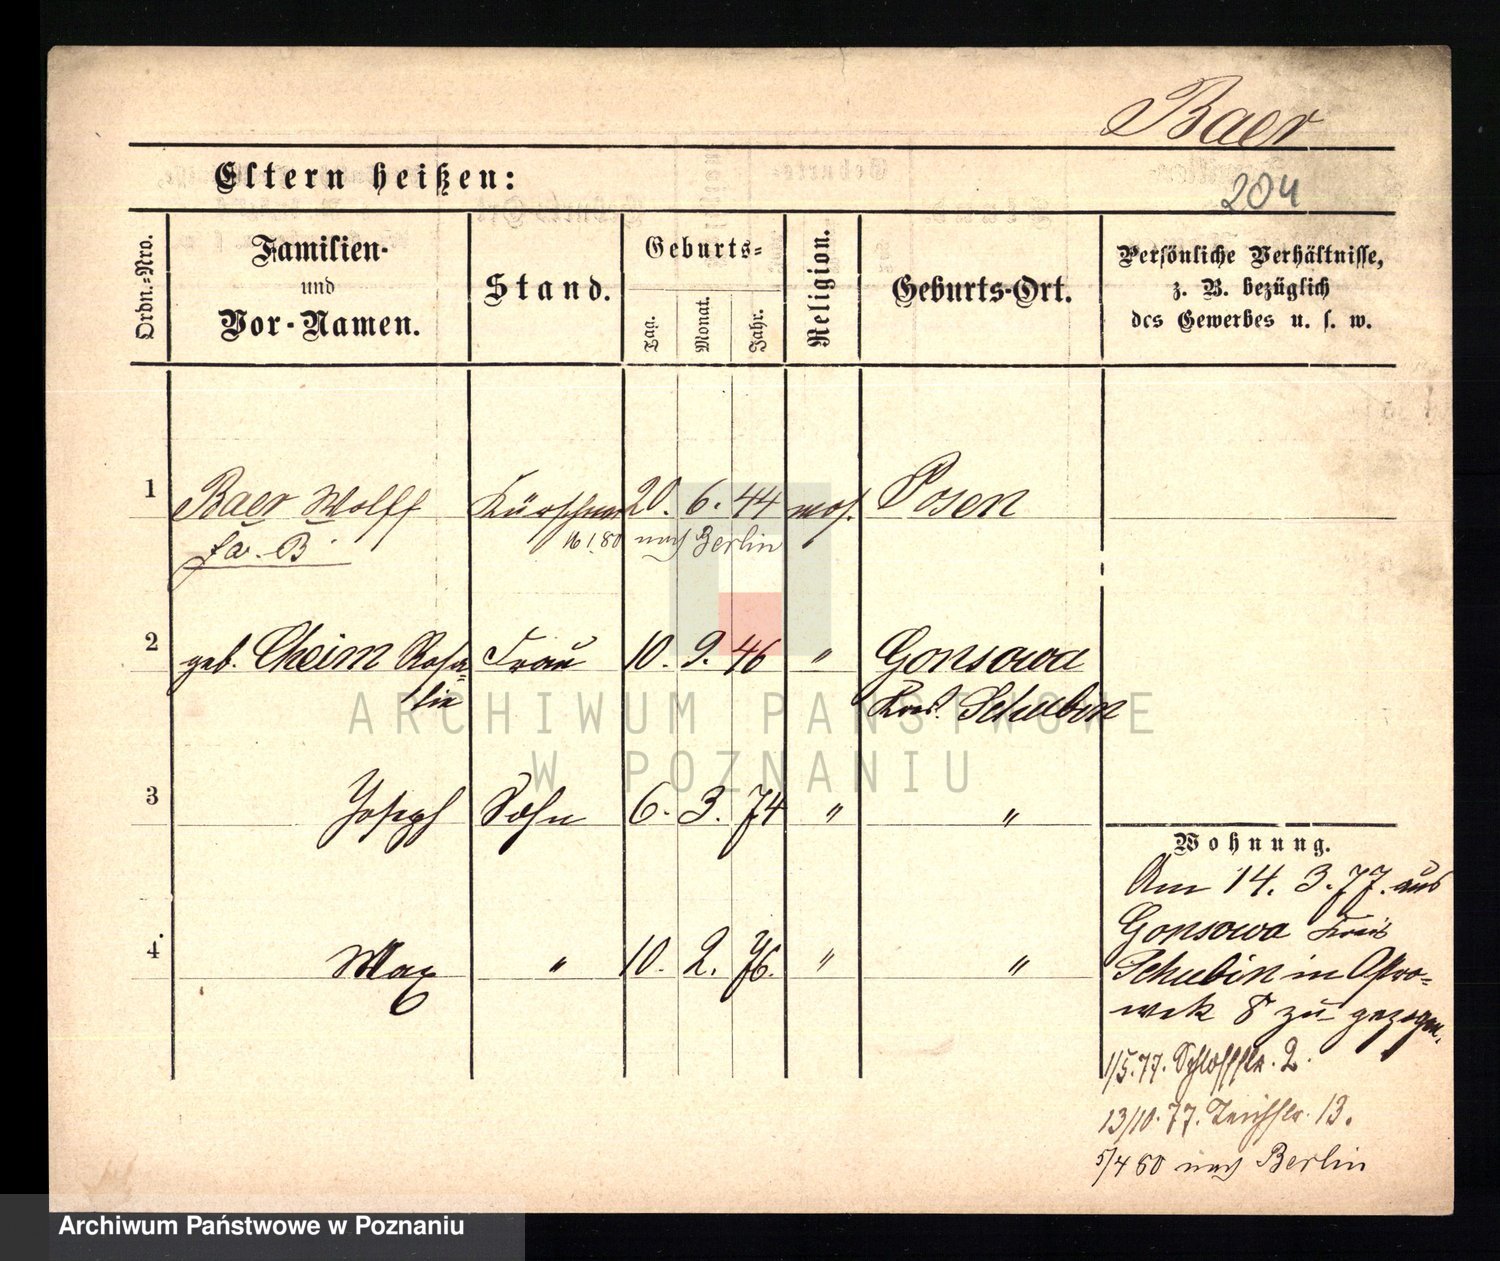 Baer
204
Eltern heißen:
Ordn.-Nro.
Familien-
und
Vor-Namen.
Stand.
Geburts-
Tag.
Monat.
Jahr.
Religion.
Geburts-Ort.
Persönliche Verhältnisse,
z. B. bezüglich
des Gewerbes u. s. w.
1 Baer Wolff Kürschner 20. 6. 44 mos. Posen
fr. B. 16 1.80 nach Berlin
2 geb. Cheim Rosa= Frau 10. 9. 46 " Gonsawa
lie Krs. Schubin
3 Joseph Sohn 6. 3. 74 " "
4 Max " 10. 2. 76. " "
Wohnung.
Am 14. 3. 77. aus
Gonsawa Kreis
Schubin in Ostro=
wek 8 zu gezogen.
1/5.77. Schloßstr. 2.
13/10. 77. Teichstr. 13.
5/4 80 nach Berlin
ARCHIWUM PAŃSTWOWE
W POZNANIU
Archiwum Państwowe w Poznaniu